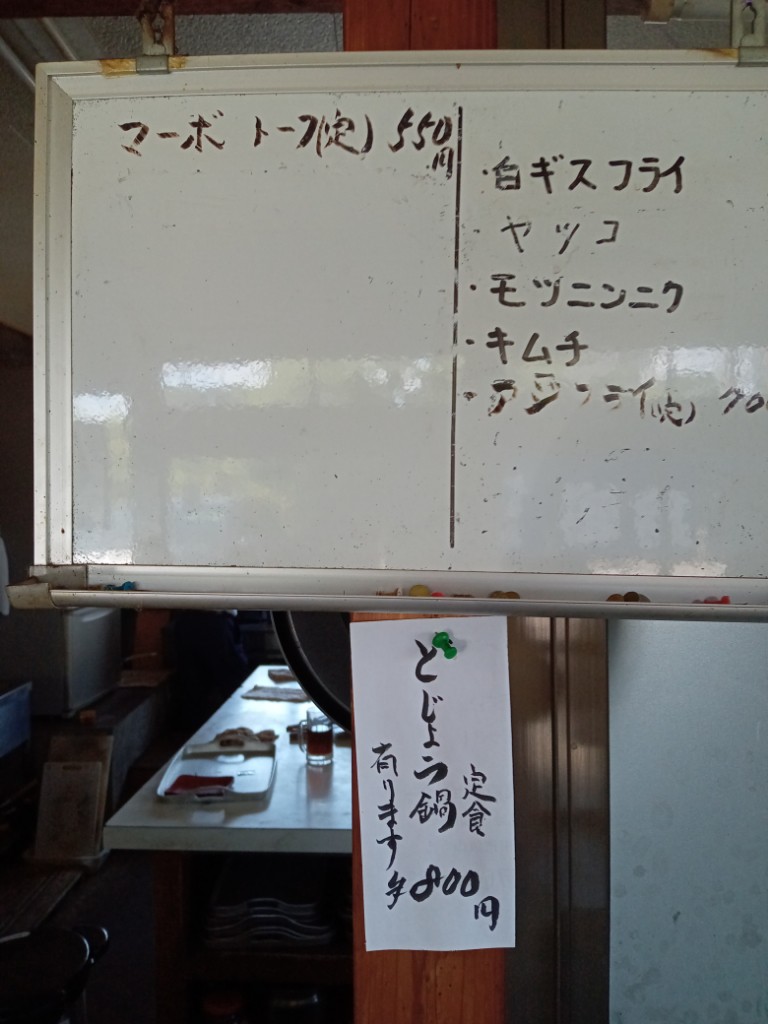 マーボ トーフ(定) 550円
・白ギスフライ
・ヤッコ
・モツニンニク
・キムチ
・アジフライ(定) 700
どじょう鍋
定食
有ります
800円